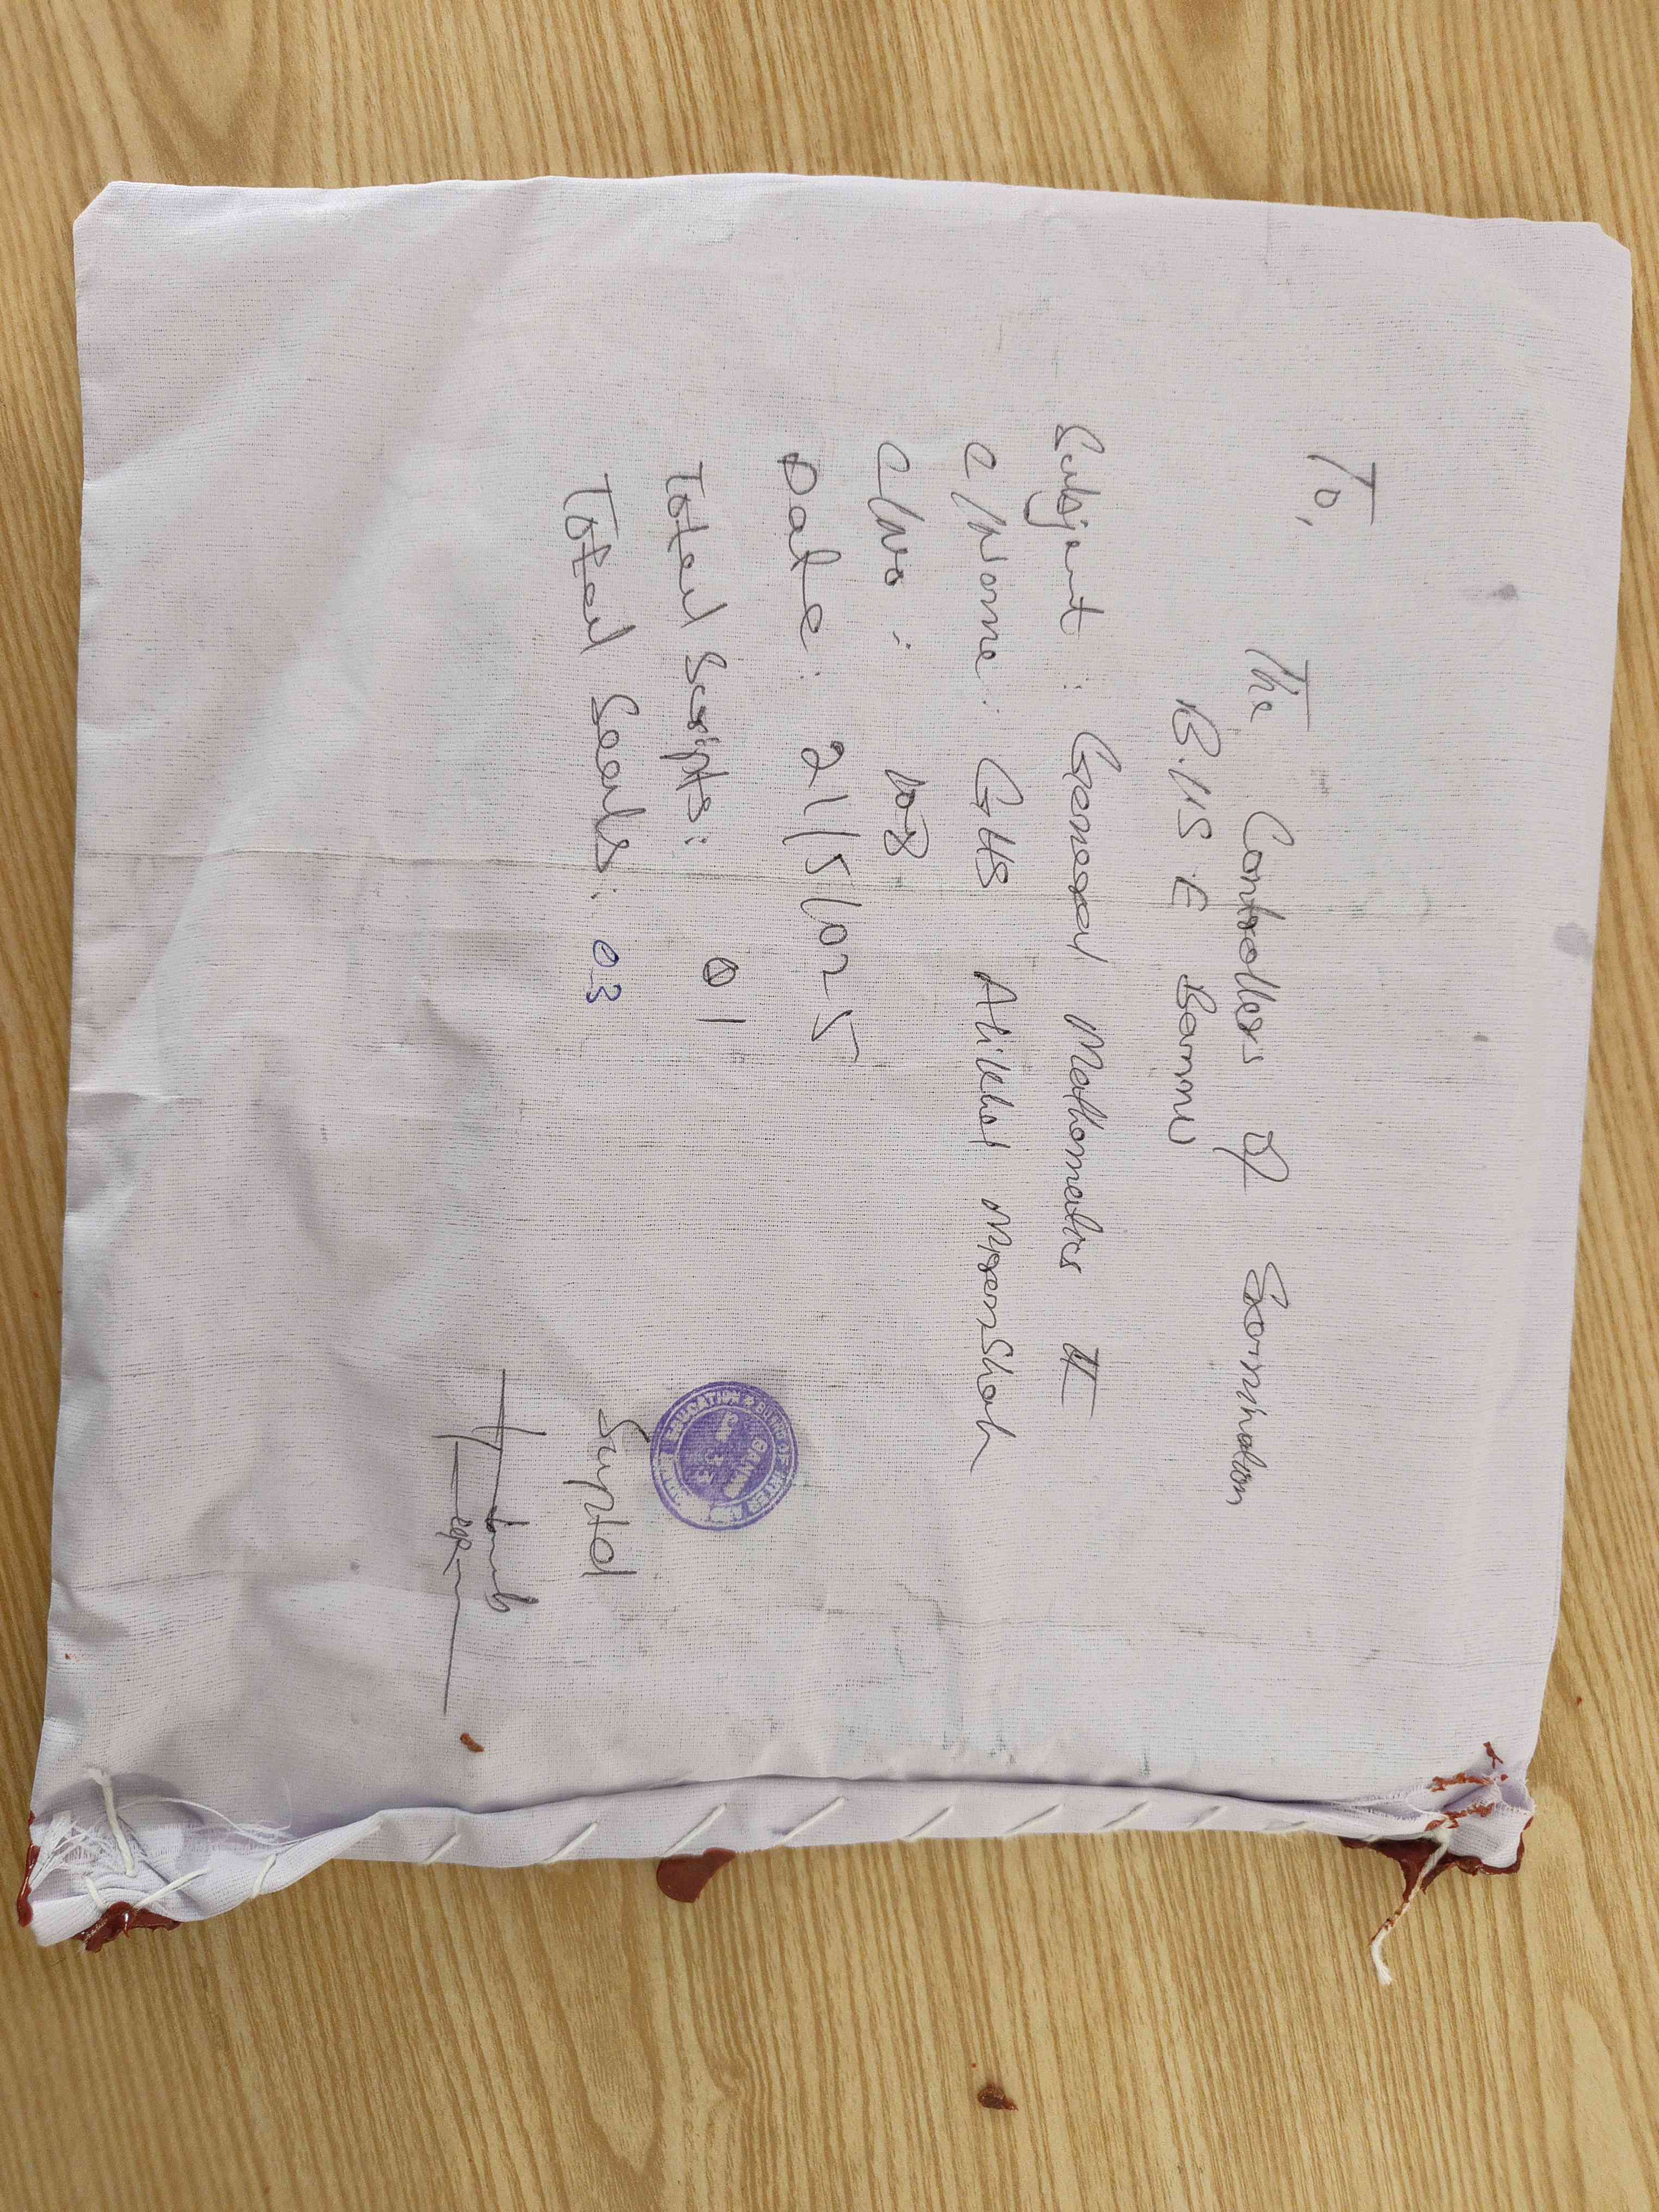 To,
The Controller of Examination
B.I.S.E Bannu
Subject : General Mathematics II
C/Name : GHS Alikhel MiramShah
C/No : 108
Date : 21/5/025
Total Scripts : 01
Total Seals : 03
EDUCATION BOARD OF INTER AND
BANNU
Suptd